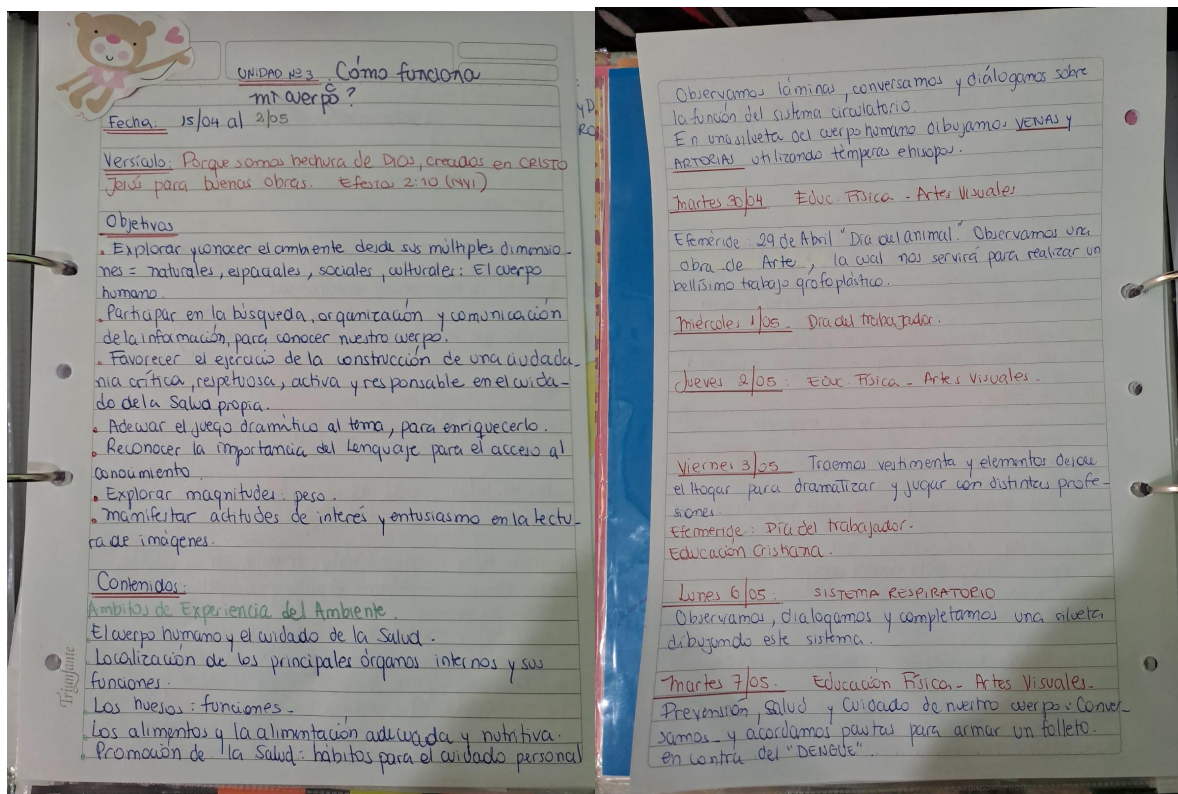 UNIDAD Nº 3. Cómo funciona
mi cuerpo?
Fecha: 15/04 al 2/05
Versículo: Porque somos hechura de DIOS, creados en CRISTO
Jesús para buenas obras. Efesios 2:10 (NVI)
Objetivos
. Explorar y conocer el ambiente desde sus múltiples dimensio-
nes = naturales, espaciales, sociales, culturales: El cuerpo
humano.
. Participar en la búsqueda, organización y comunicación
de la información, para conocer nuestro cuerpo.
. Favorecer el ejercicio de la construcción de una ciudada-
nia crítica, respetuosa, activa y responsable en el cuida-
do de la Salud propia.
. Adecuar el juego dramático al tema, para enriquecerlo.
. Reconocer la importancia del Lenguaje para el acceso al
conocimiento.
. Explorar magnitudes: peso.
. Manifestar actitudes de interés y entusiasmo en la lectu-
ra de imágenes.
Contenidos:
Ambitos de Experiencia del Ambiente.
El cuerpo humano y el cuidado de la Salud.
Localización de los principales órganos internos y sus
funciones.
Los huesos: funciones.
Los alimentos y la alimentación adecuada y nutritiva.
. Promoción de la Salud: hábitos para el cuidado personal
Triunfante
Observamos láminas, conversamos y diálogamos sobre
la función del sistema circulatorio.
En una silueta del cuerpo humano dibujamos VENAS y
ARTORIAS utilizando témperas e hisopos.
Martes 30/04 Educ. Física - Artes Visuales
Efeméride: 29 de Abril "Día del animal". Observamos una
obra de Arte, la cual nos servirá para realizar un
bellísimo trabajo grafoplástico.
Miércoles 1/05. Día del trabajador.
Jueves 2/05: Educ. Física - Artes Visuales.
Viernes 3/05 Traemos vestimenta y elementos desde
el Hogar para dramatizar y jugar con distintas profe-
siones.
Efeméride: Día del trabajador.
Educación Cristiana.
Lunes 6/05. SISTEMA RESPIRATORIO
Observamos, dialogamos y completamos una silueta,
dibujando este sistema.
Martes 7/05. Educación Física - Artes Visuales.
Prevensión, Salud y Cuidado de nuestro cuerpo. Conver-
samos y acordamos pautas para armar un folleto.
en contra del "DENGUE".